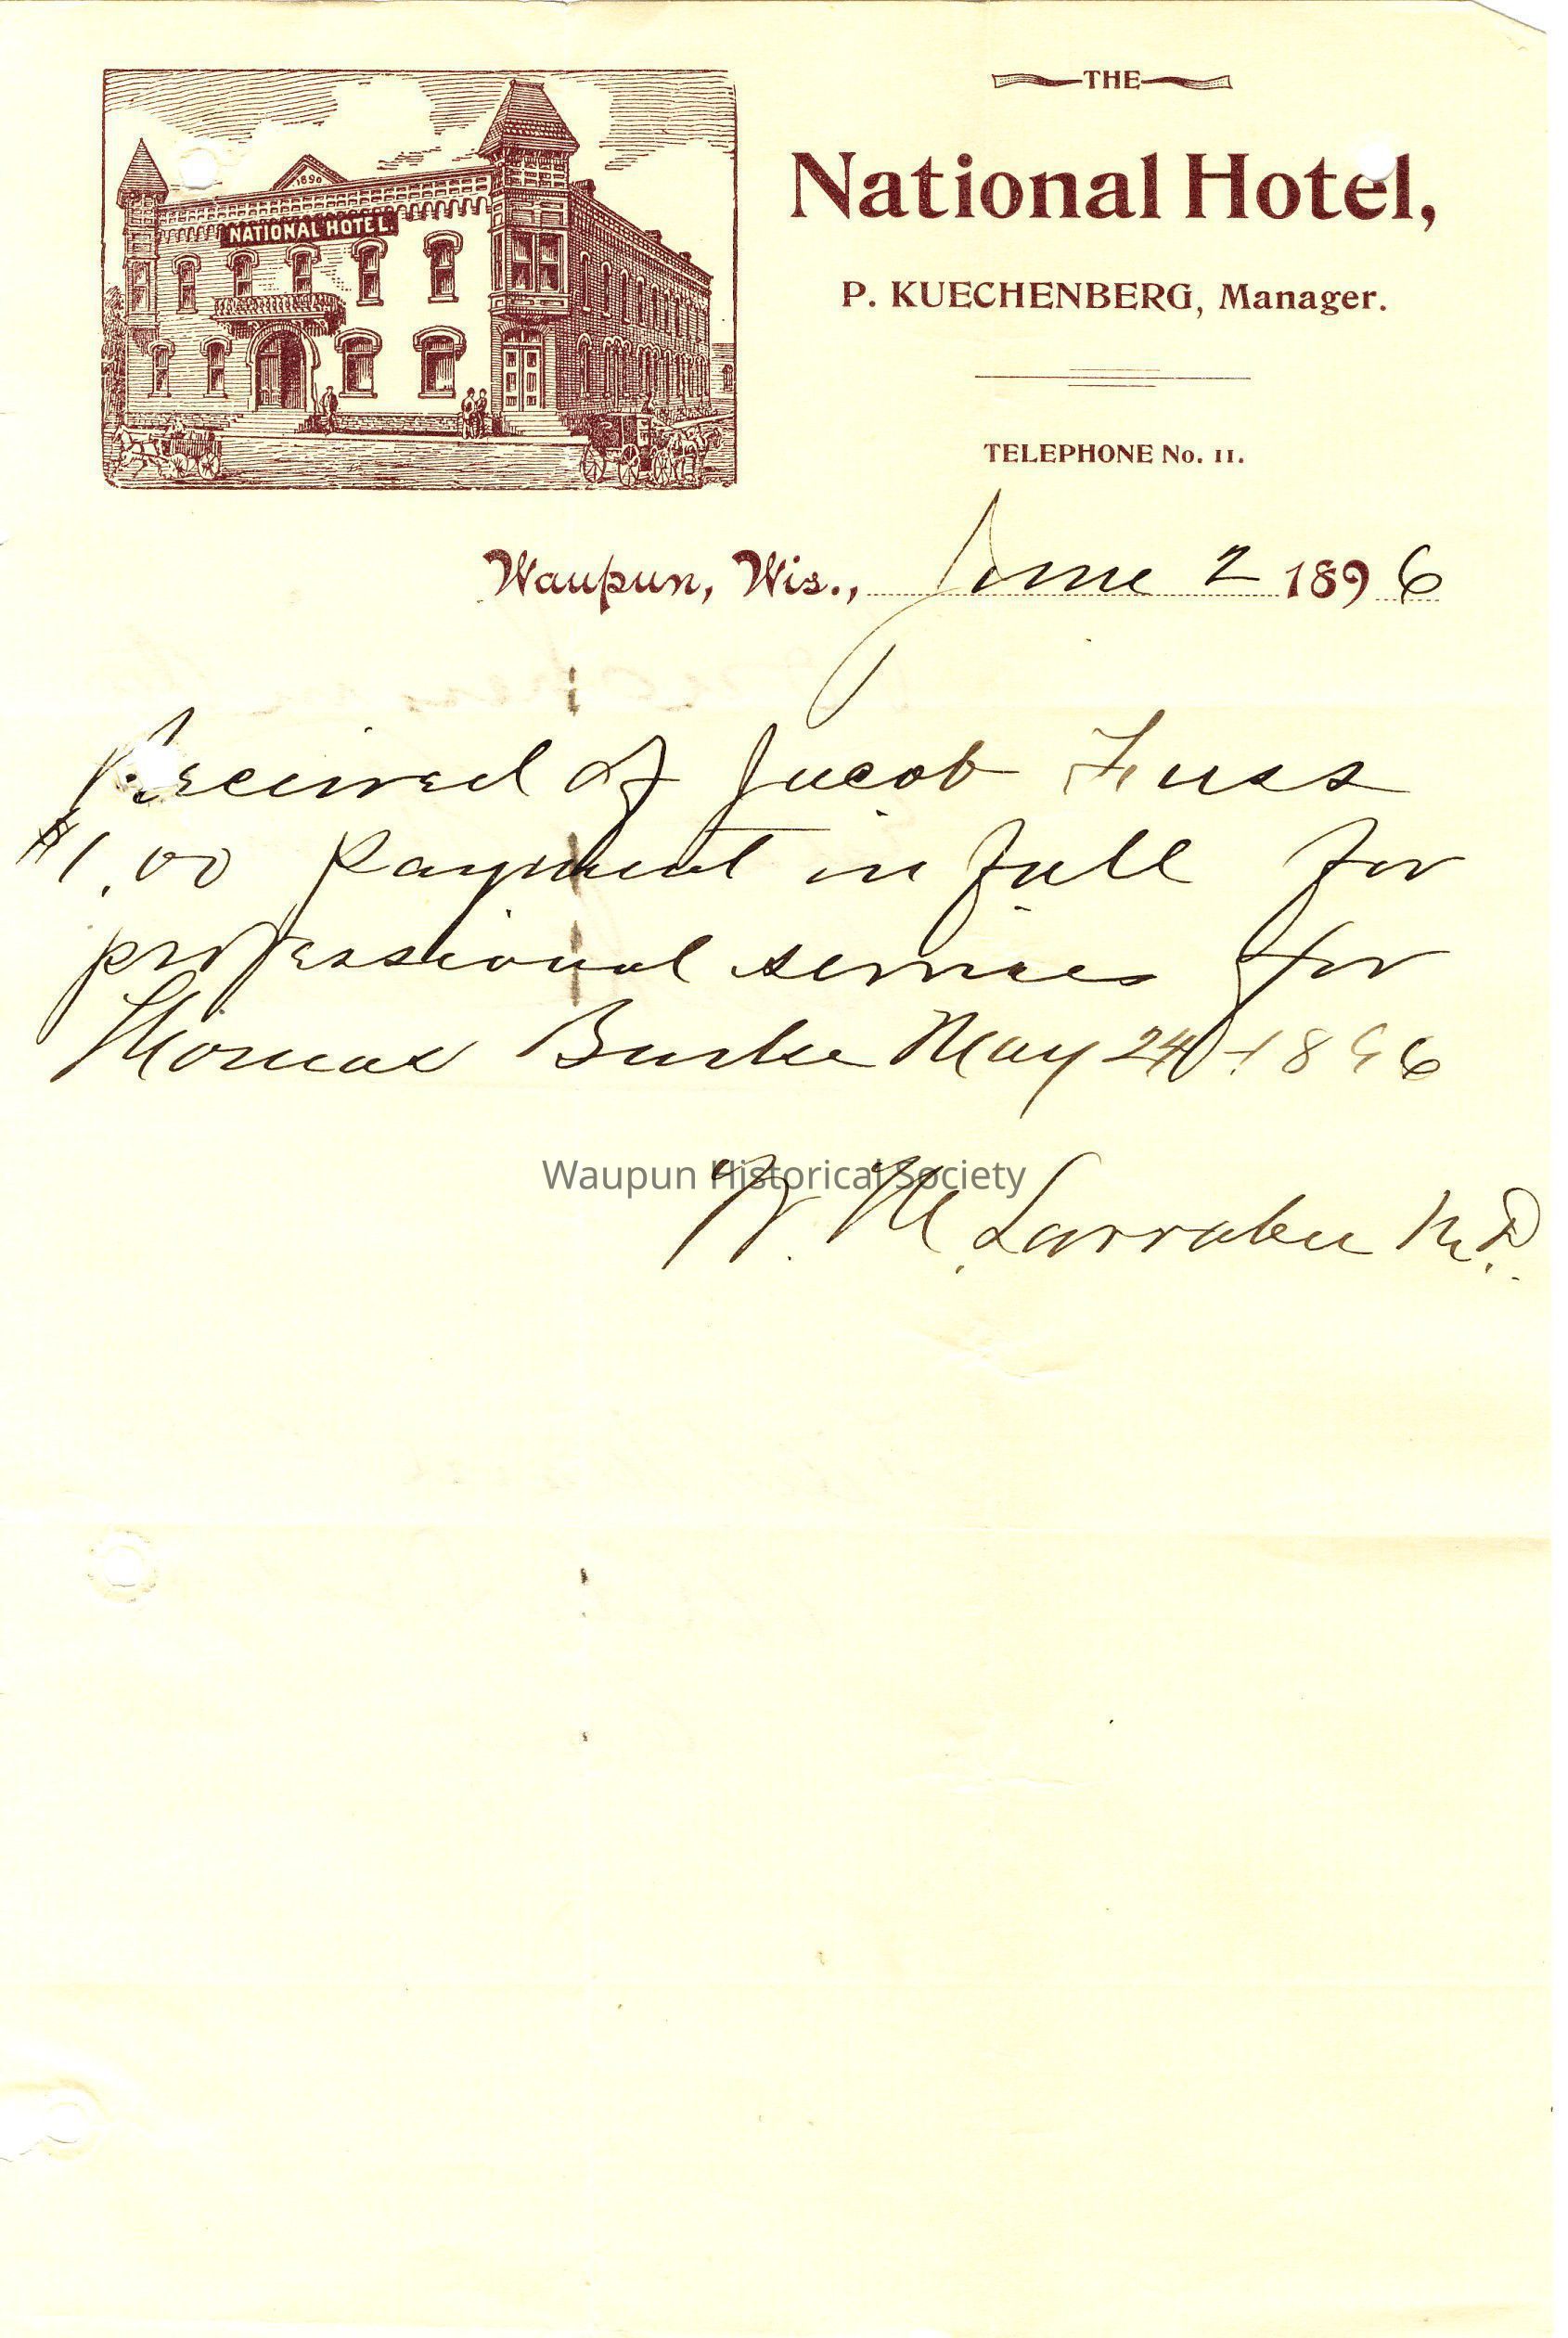 THE
National Hotel,
P. KUECHENBERG, Manager.
TELEPHONE No. 11.
1890
NATIONAL HOTEL.
Waupun, Wis., June 2 1896
Received of Jacob Fuss
$1.00 Payment in full for
professional services for
Thomas Burke May 24 1896
Waupun Historical Society
W. M. Larrabee M.D.